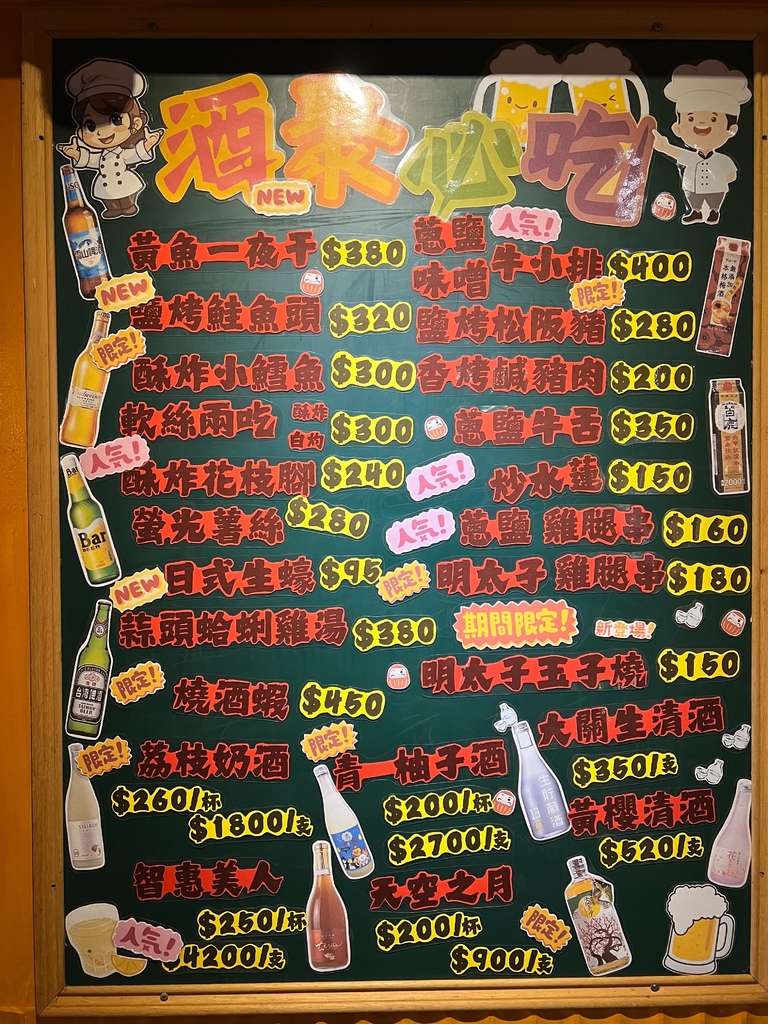 酒泰必吃
NEW
黃魚一夜干 $380
NEW
鹽烤鮭魚頭 $320
限定!
酥炸小鱈魚 $300
軟絲兩吃 酥炸 白灼 $300
人気!
酥炸花枝腳 $240
螢光薯絲 $280
NEW
日式生蠔 $95
蒜頭蛤蜊雞湯 $380
限定!
燒酒蝦 $450
人気!
蔥鹽
味噌 牛小排 $400
限定!
鹽烤松阪豬 $280
香烤鹹豬肉 $200
蔥鹽牛舌 $350
人気!
炒水蓮 $150
人気!
蔥鹽 雞腿串 $160
限定!
明太子 雞腿串 $180
期間限定!
新登場!
明太子玉子燒 $150
限定!
荔枝奶酒
$260/杯
$1800/支
限定!
青一柚子酒
$200/杯
$2700/支
大關生清酒
$350/支
黃櫻清酒
$520/支
智惠美人
$250/杯
人気!
$4200/支
天空之月
$200/杯
限定!
$900/支
Bar
BEER
台灣啤酒
TAIWAN
BEER
生貯蔵酒
2000